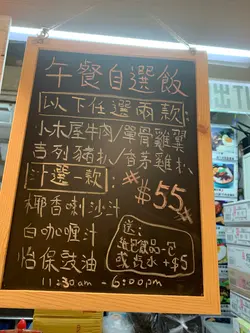 午餐自選飯
以下任選兩款:
小木屋牛肉/單骨雞翼
吉列豬扒/香茅雞扒
汁選一款:
$55
椰香喇沙汁
白咖喱汁
怡保豉油
送:
或汽水+$5
11:30am - 6:00pm